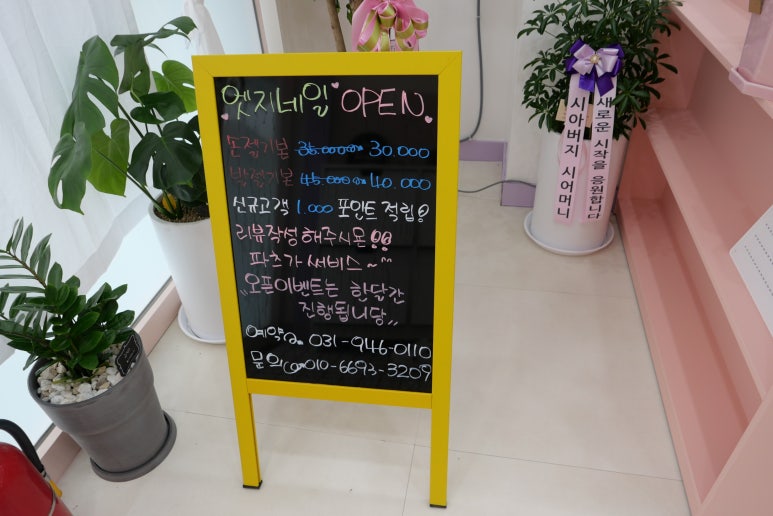 엣지네일 OPEN
손젤기본 35.000 30.000
발젤기본 45.000 40.000
신규고객 1.000 포인트 적립!
리뷰작성 해주시몬!!
파츠가 써비스~^^
"오픈이벤트는 한달간
진행됩니당"
예약 031-946-0110
문의 010-6693-3209
시아버지 시어머니
새로운 시작을 응원합니다